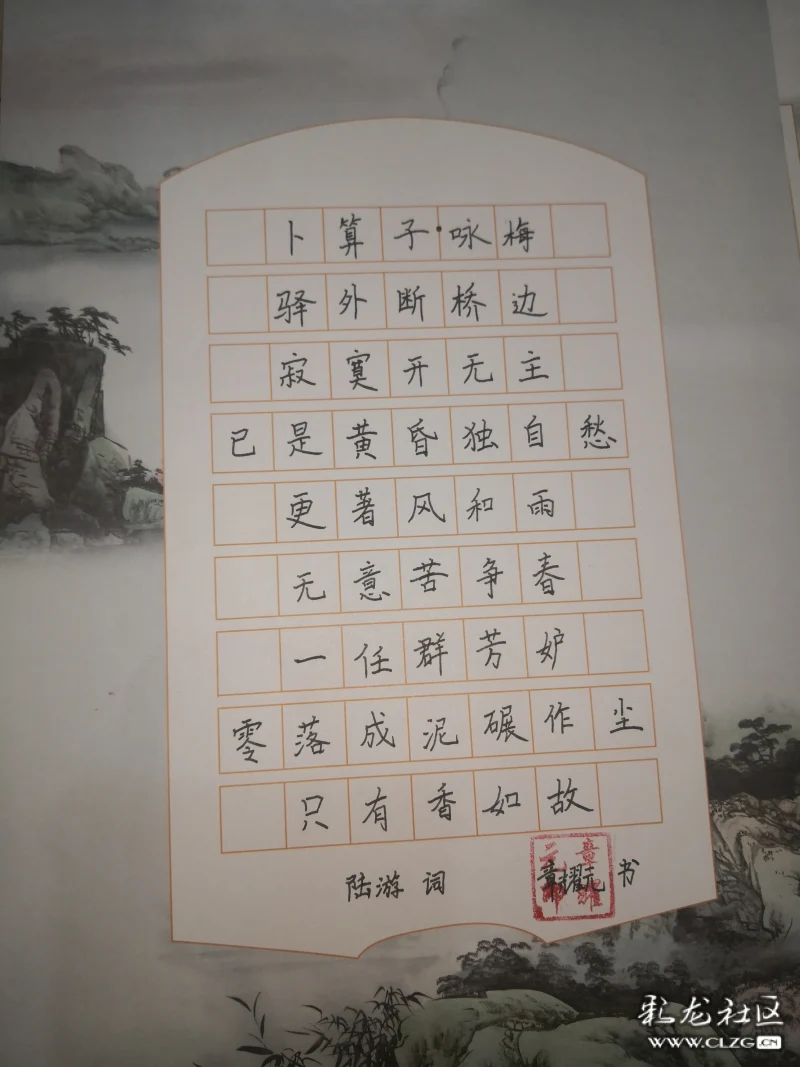 卜算子·咏梅
驿外断桥边
寂寞开无主
已是黄昏独自愁
更著风和雨
无意苦争春
一任群芳妒
零落成泥碾作尘
只有香如故
陆游 词
章耀元 书
彩龙社区
WWW.CLZG.CN